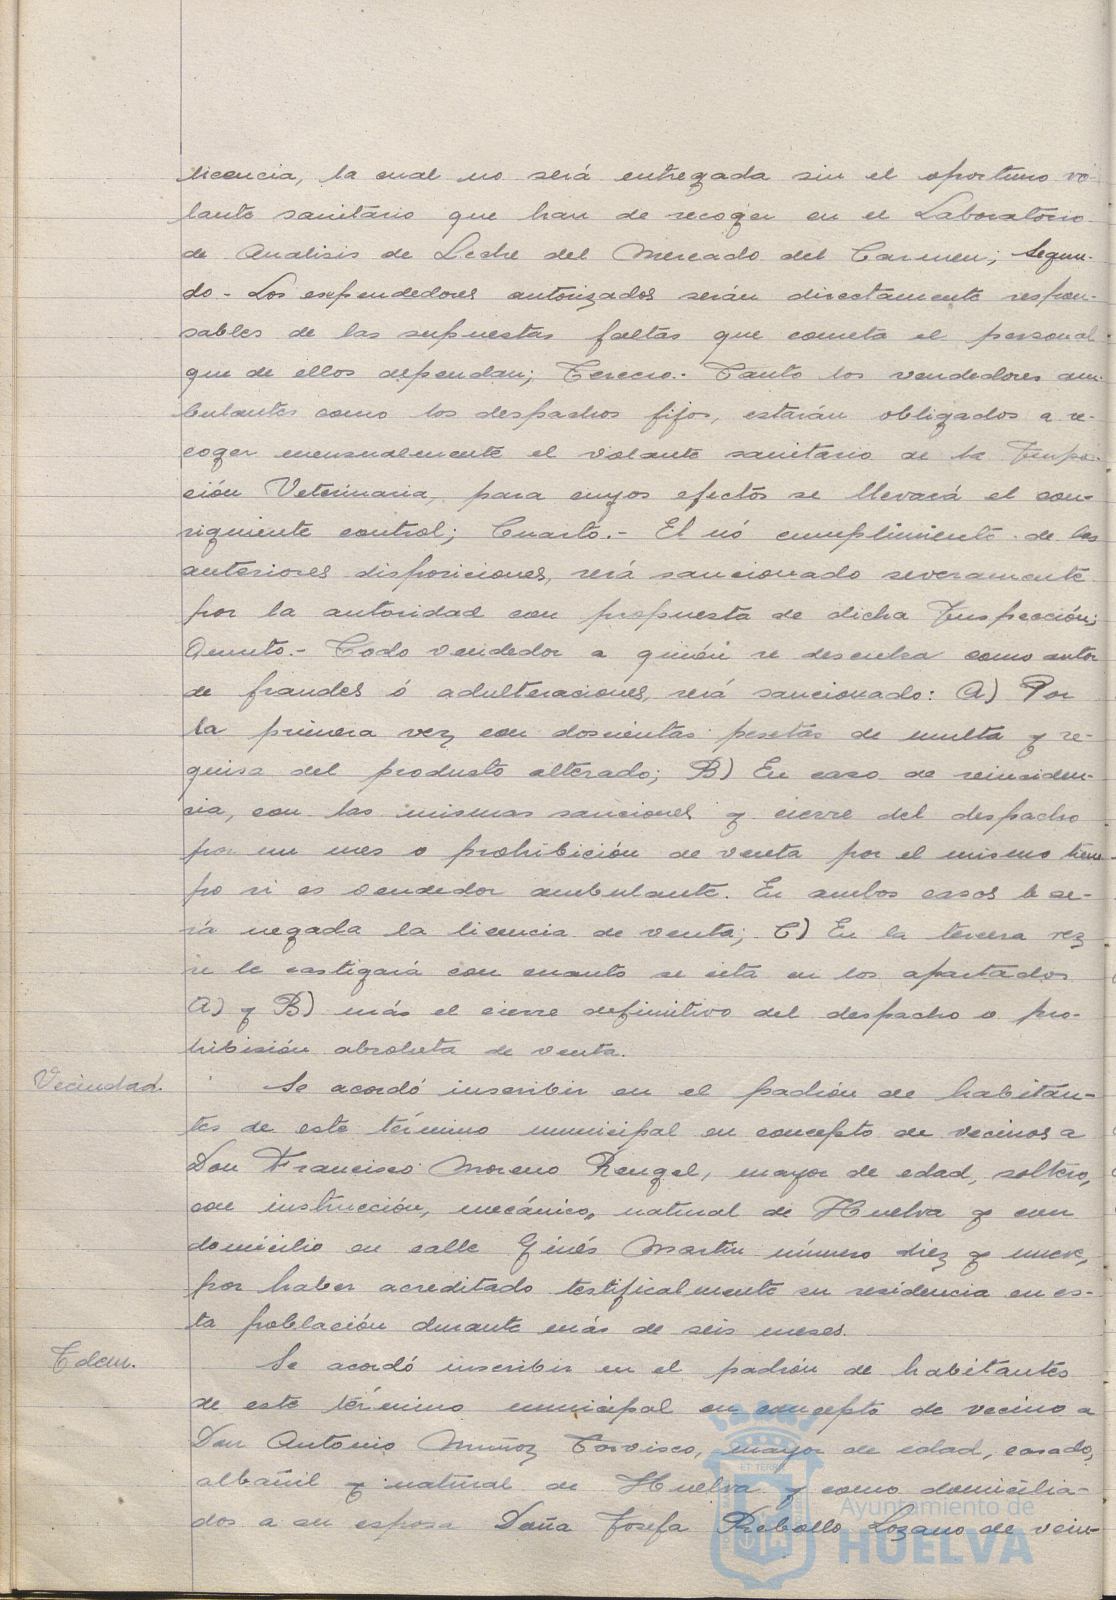 licencia, la cual no será entregada sin el oportuno vo-
lante sanitario que han de recoger en el Laboratorio
de Analisis de Leche del Mercado del Carmen; Segun-
do.- Los expendedores autorizados serán directamente respon-
sables de las supuestas faltas que cometa el personal
que de ellos dependan; Tercero.- Tanto los vendedores am-
bulantes como los despachos fijos, estarán obligados a re-
coger mensualmente el volante sanitario de la Inspe-
ción Veterinaria, para cuyos efectos se llevará el con-
siguiente control; Cuarto.- El nó cumplimiento de las
anteriores disposiciones, será sancionado severamente
por la autoridad con propuesta de dicha Inspección;
Quinto.- Todo vendedor a quién se descubra como autor
de fraudes ó adulteraciones, será sancionado: A) Por
la primera vez con doscientas pesetas de multa y re-
quisa del producto alterado; B) En caso de reinciden-
cia, con las mismas sanciones y cierre del despacho
por un mes o prohibición de venta por el mismo tiem-
po si es vendedor ambulante. En ambos casos le se-
rá negada la licencia de venta; C) En la tercera vez
se le castigará con cuanto se cita en los apartados
A) y B) más el cierre definitivo del despacho o pro-
hibición absoluta de venta.
Vecindad.
Se acordó inscribir en el padrón de habitan-
tes de este término municipal en concepto de vecinos a
Don Francisco Moreno Rengel, mayor de edad, soltero,
con instrucción, mecánico, natural de Huelva y con
domicilio en calle Ginés Martín número diez y nueve,
por haber acreditado testificalmente su residencia en es-
ta población durante más de seis meses.
Idem.
Se acordó inscribir en el padrón de habitantes
de este término municipal en concepto de vecino a
Don Antonio Muñoz Torvisco, mayor de edad, casado,
albañil y natural de Huelva y como domicilia-
dos a su esposa Doña Josefa Rebollo Lozano de vein-
Ayuntamiento de
HUELVA